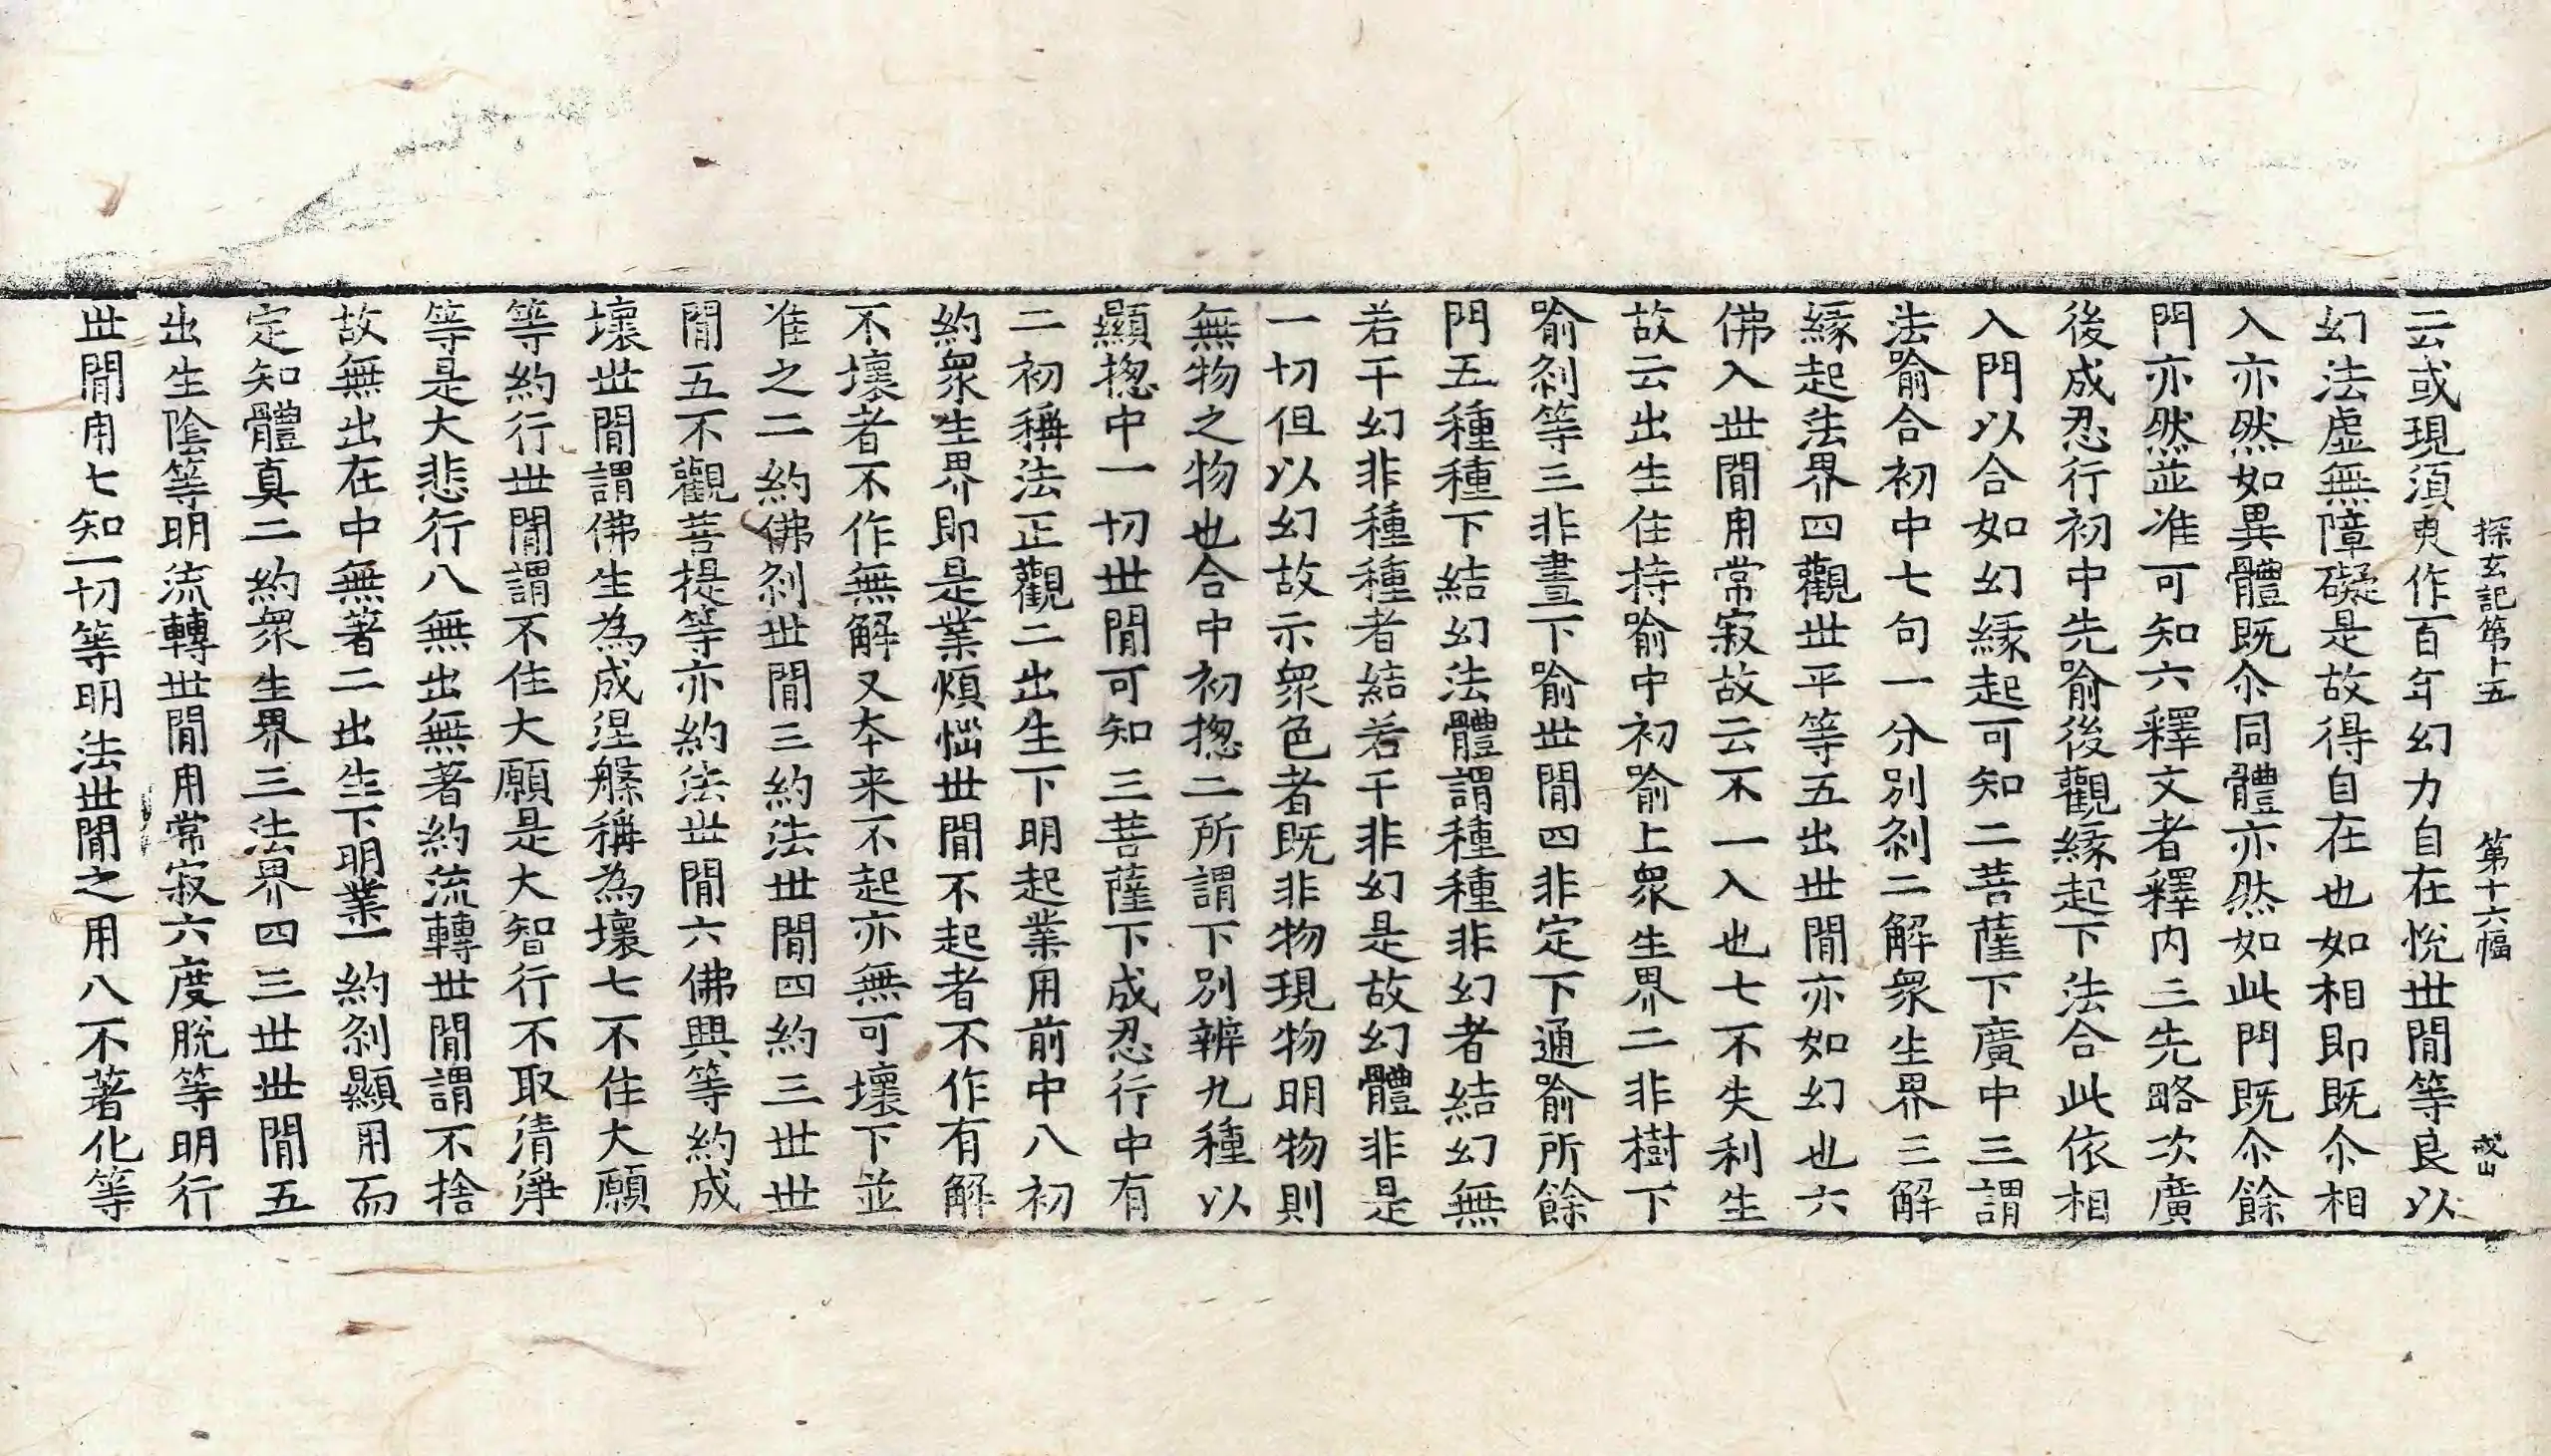 探玄記第十五　第十六幅
云或現湏臾作百年幻力自在恱世間等良以
幻法虛無障礙是故得自在也如相即既尒相
入亦然如異體既尒同體亦然如此門既尒餘
門亦然並准可知六釋文者釋内三先略次廣
後成忍行初中先喻後觀緣起下法合此依相
入門以合如幻緣起可知二菩薩下廣中三謂
法喻合初中七句一分別刹二解衆生界三解
緣起法界四觀世平等五出世間亦如幻也六
佛入世間用常寂故云不一入也七不失利生
故云出生住持喻中初喻上衆生界二非樹下
喻刹等三非晝下喻世間四非定下通喻所餘
門五種種下結幻法體謂種種非幻者結幻無
若干幻非種種者結若干非幻是故幻體非是
一切但以幻故示衆色者既非物現物明物則
無物之物也合中初揔二所謂下別辨九種以
顯揔中一切世間可知三菩薩下成忍行中有
二初稱法正觀二出生下明起業用前中八初
約衆生界即是業煩惱世間不起者不作有解
不壞者不作無解又夲来不起亦無可壞下並
准之二約佛刹世間三約法世間四約三世世
間五不觀菩提等亦約法世間六佛興等約成
壞世間謂佛生為成涅槃稱為壞七不住大願
等約行世間謂不住大願是大智行不取清淨
等是大悲行八無出無著約流轉世間謂不捨
故無出在中無著二出生下明業一約刹顯用而
定知體真二約衆生界三法界四三世世間五
出生陰等明流轉世間用常寂六度脫等明行
世間用七知一切等明法世間之用八不著化等